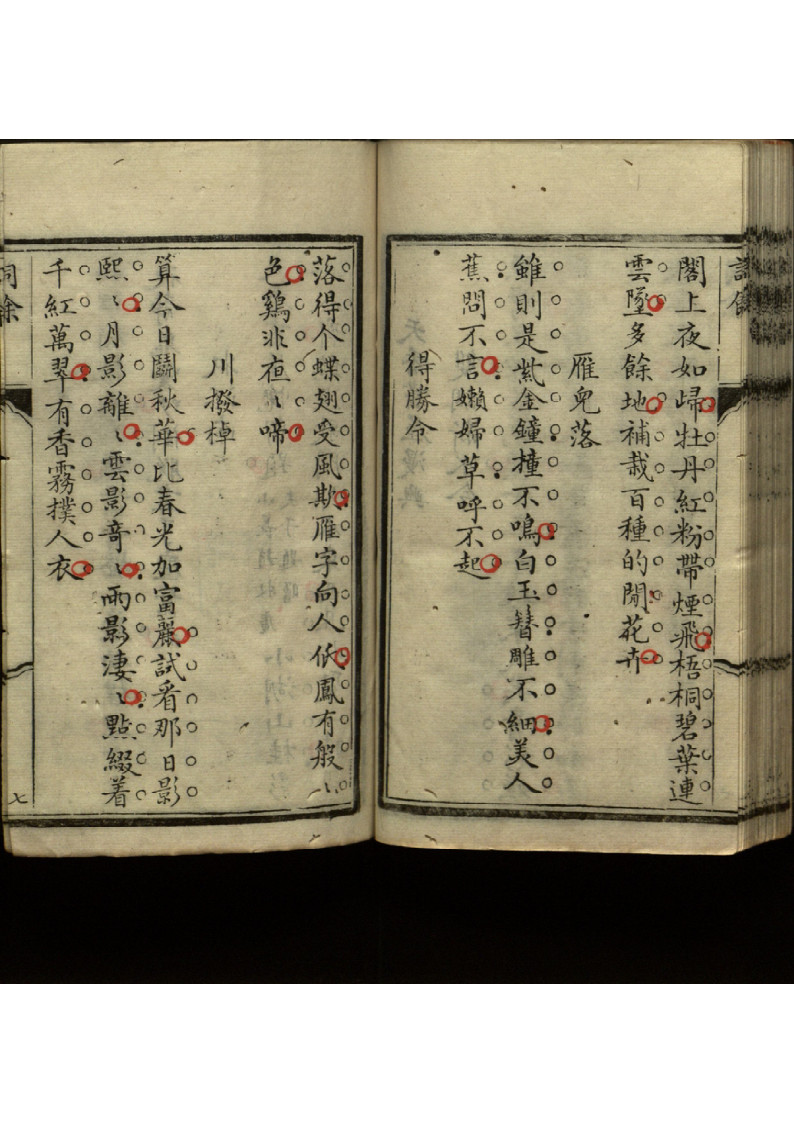 閣上夜如歸牡丹紅粉帶煙飛梧桐碧葉連
雲墜多餘地補栽百種的閒花卉
雁兒落
雖則是紫金鐘撞不鳴白玉簪雕不細美人
蕉問不言嬾婦草呼不起
得勝令
落得个蝶翅受風欺雁字向人低鳳有般〻
色鷄非夜〻啼
川撥棹
算今日鬬秋華比春光加富麗試看那日影
熙〻月影離〻雲影奇〻雨影淒〻點綴着
千紅萬翠有香霧撲人衣
七